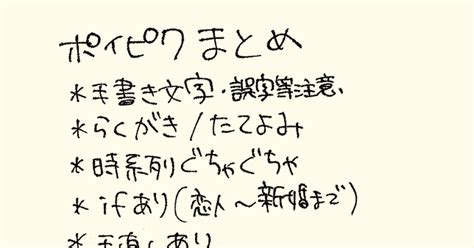 ポイピクまとめ
*手書き文字・誤字等注意、
*らくがき/たてよみ
*時系列ぐちゃぐちゃ
*ifあり(恋人～新婚まで)
*手直しあり